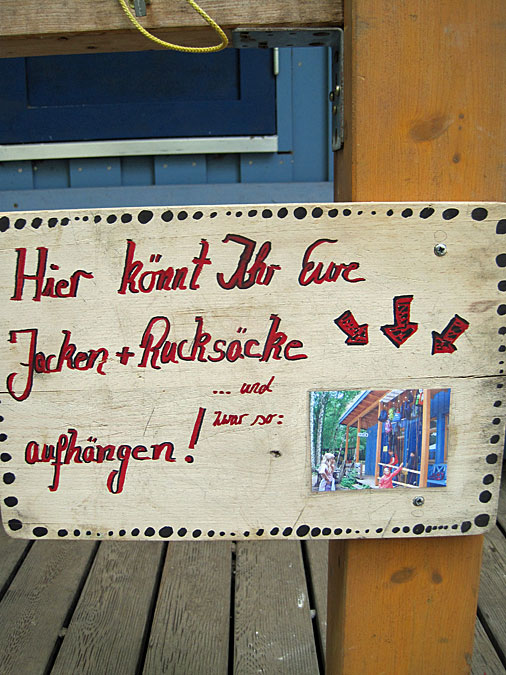 Hier könnt Ihr Eure
Jacken + Rucksäcke
... und
zwar so:
aufhängen!